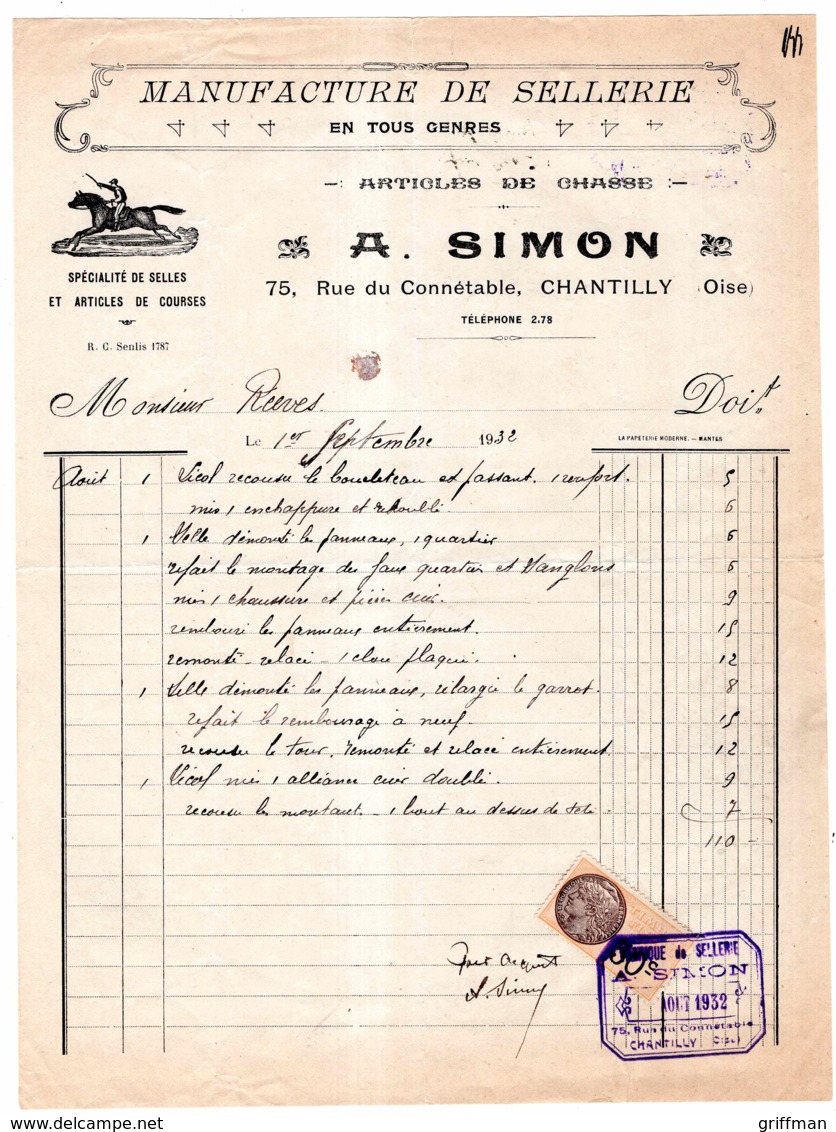 MANUFACTURE DE SELLERIE
EN TOUS GENRES
ARTICLES DE CHASSE
A. SIMON
75, Rue du Connétable, CHANTILLY (Oise)
TÉLÉPHONE 2.78
SPÉCIALITÉ DE SELLES
ET ARTICLES DE COURSES
R. C. Senlis 1787
Monsieur Reeves. Doit
Le 1er Septembre 1932
LA PAPETERIE MODERNE. — MANTES
Août 1 Licol recousu le boucleteau et passant. 1 renfort. 5
mis 1 enchappure et redoublé. 6
1 Selle démonté les panneaux, 1 quartier 6
refait le montage des faux quartier et sanglons 6
mis 1 chaussure et pièces cuir. 9
rembouré les panneaux entièrement. 15
remonté - relacé - 1 clou plaqué. 12
1 Selle démonté les panneaux, rélargie le garrot. 8
refait le rembourage à neuf - 15
recousu le tour, remonté et relacé entièrement 12
1 Licol mis 1 alliance cuir doublé. 9
recousu les montant - 1 bout au dessus de tete - 7
110 -
Pour acquit
A. Simon
FABRIQUE de SELLERIE
A. SIMON
AOUT 1932
75, Rue du Connétable
CHANTILLY (Oise)
delcampe.net
griffman